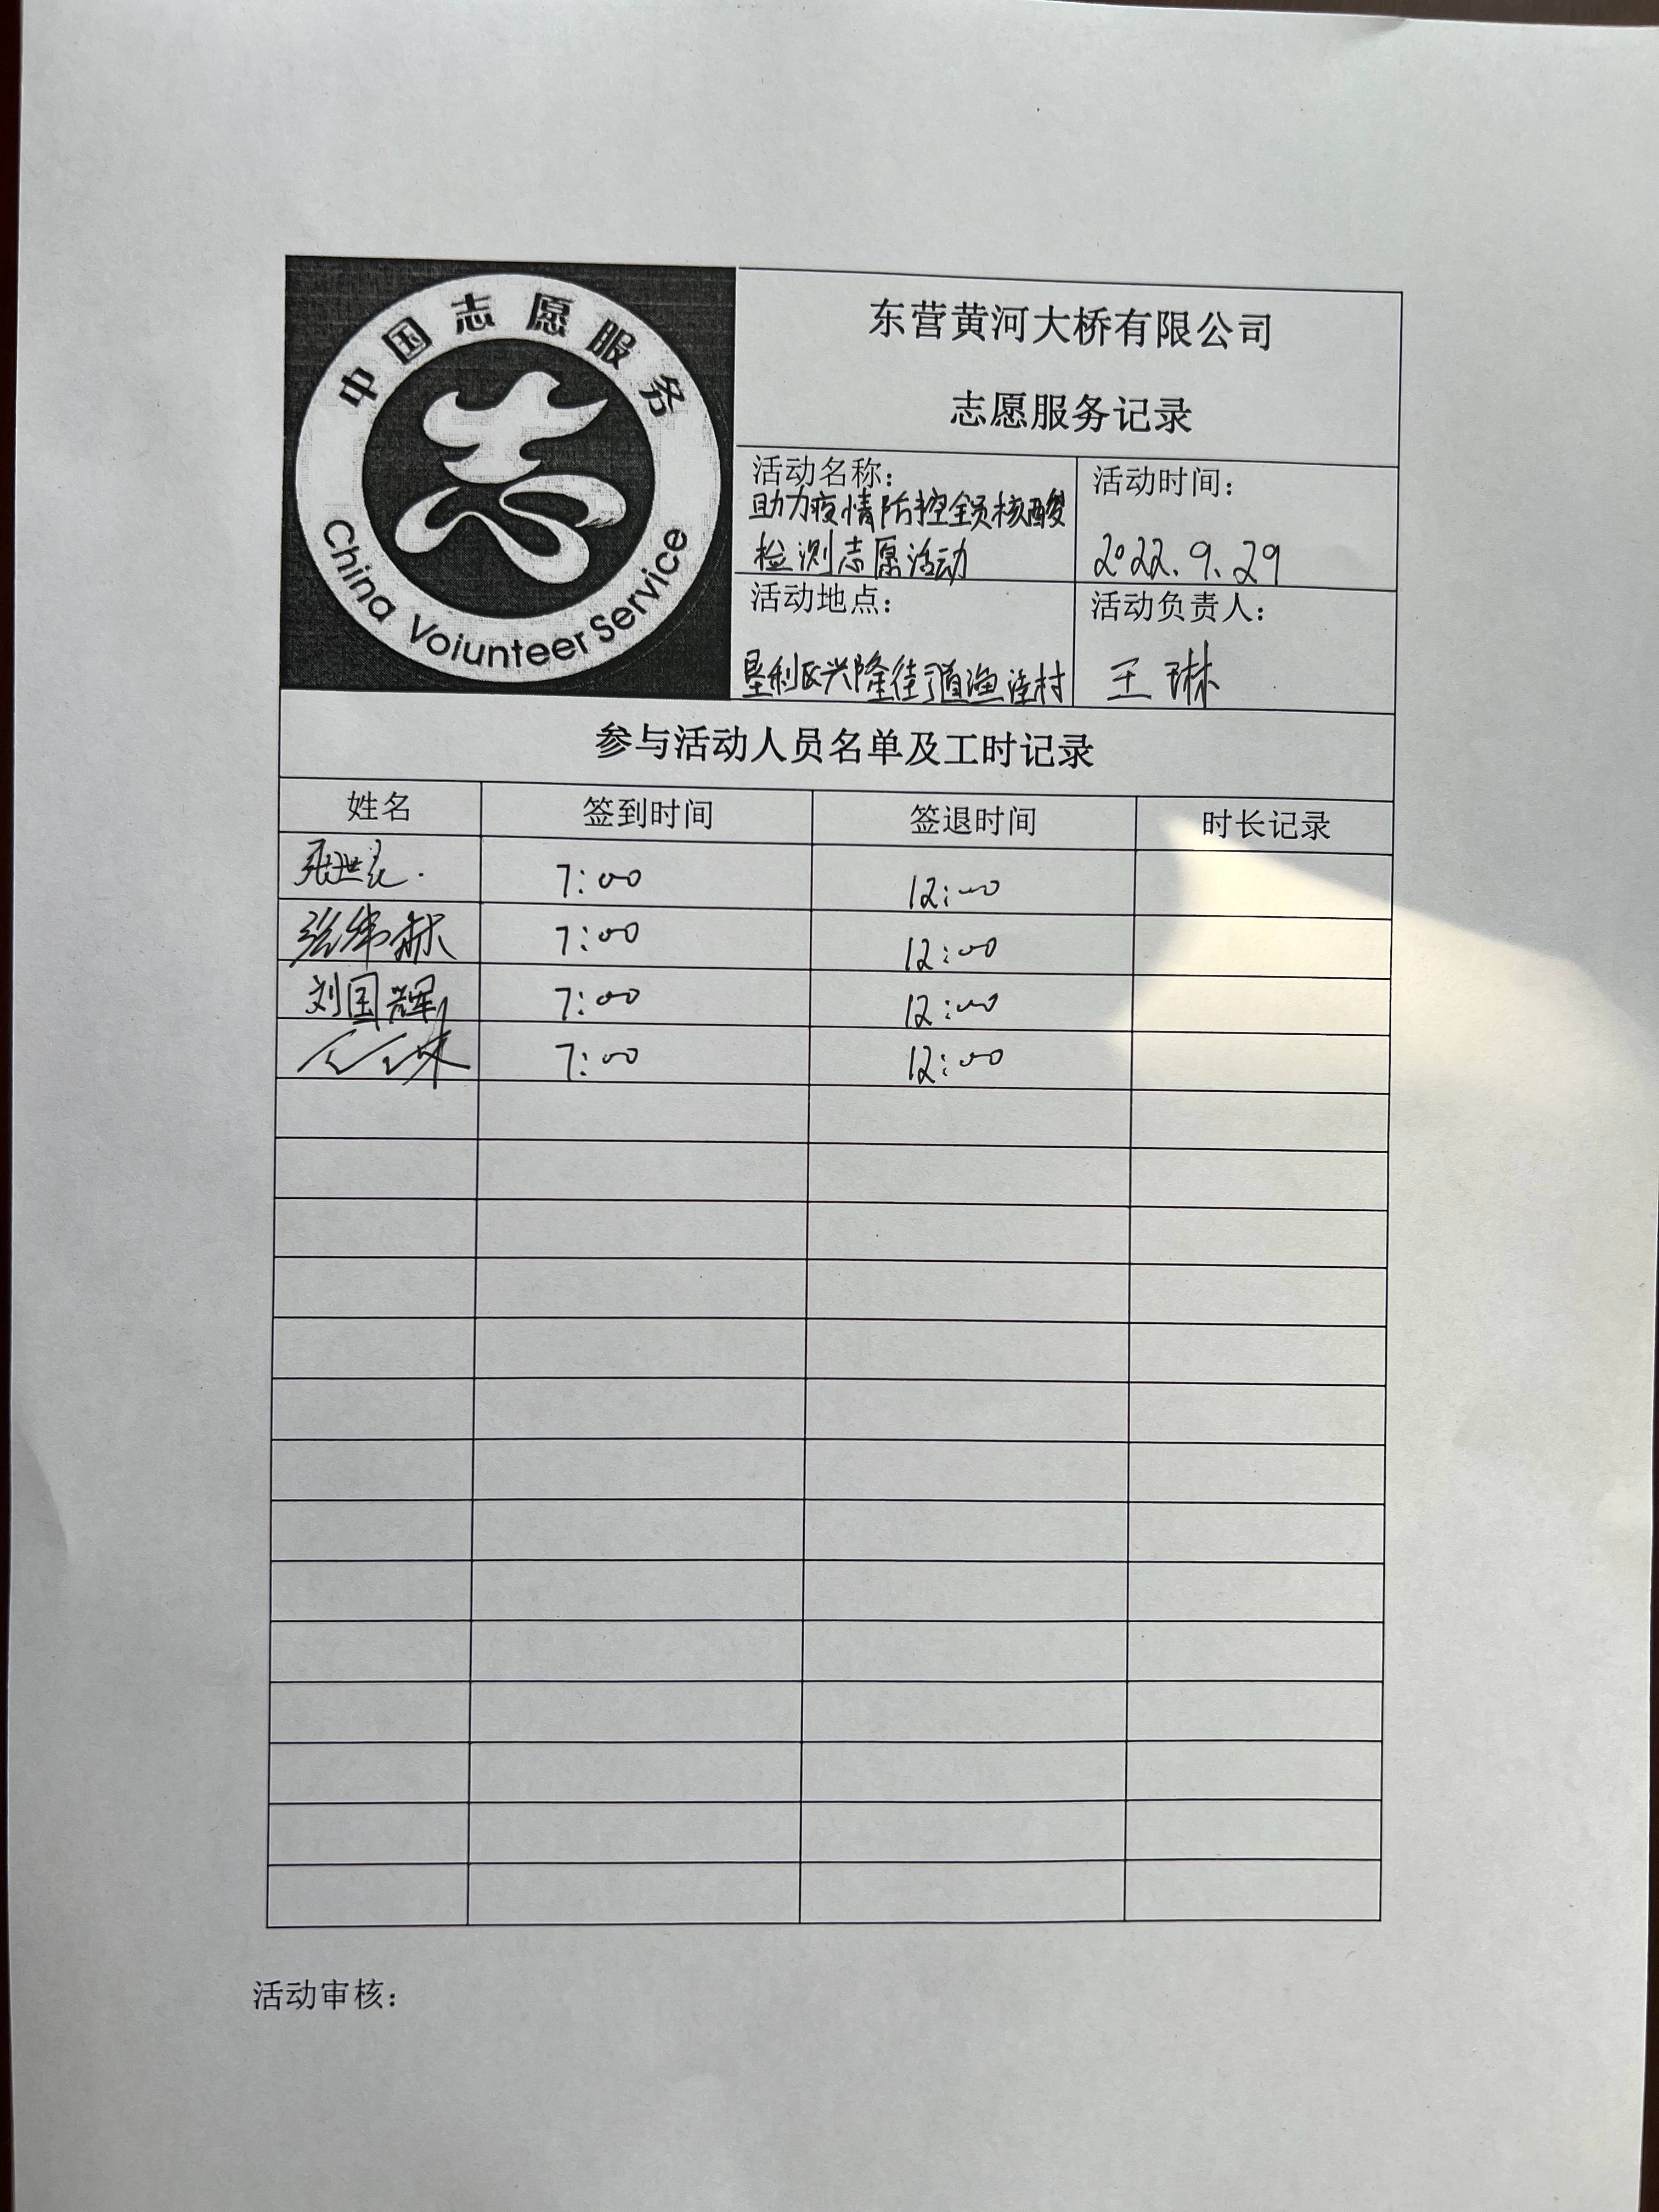 中国志愿服务
China Voiunteer Service
东营黄河大桥有限公司
志愿服务记录
活动名称：
助力疫情防控全员核酸
检测志愿活动
活动时间：
2022.9.29
活动地点：
垦利区兴隆街道渔洼村
活动负责人：
王琳
参与活动人员名单及工时记录
姓名 签到时间 签退时间 时长记录
7:00 12:00
7:00 12:00
刘国辉 7:00 12:00
7:00 12:00
活动审核：